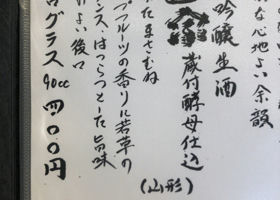 な心地よい余韻
吟醸生酒
蔵付酵母仕込
(山形)
たまさむね
プフルーツの香りに若草の
ンス、はつらつとした旨味
よい後口
ログラス 90cc 四〇〇円